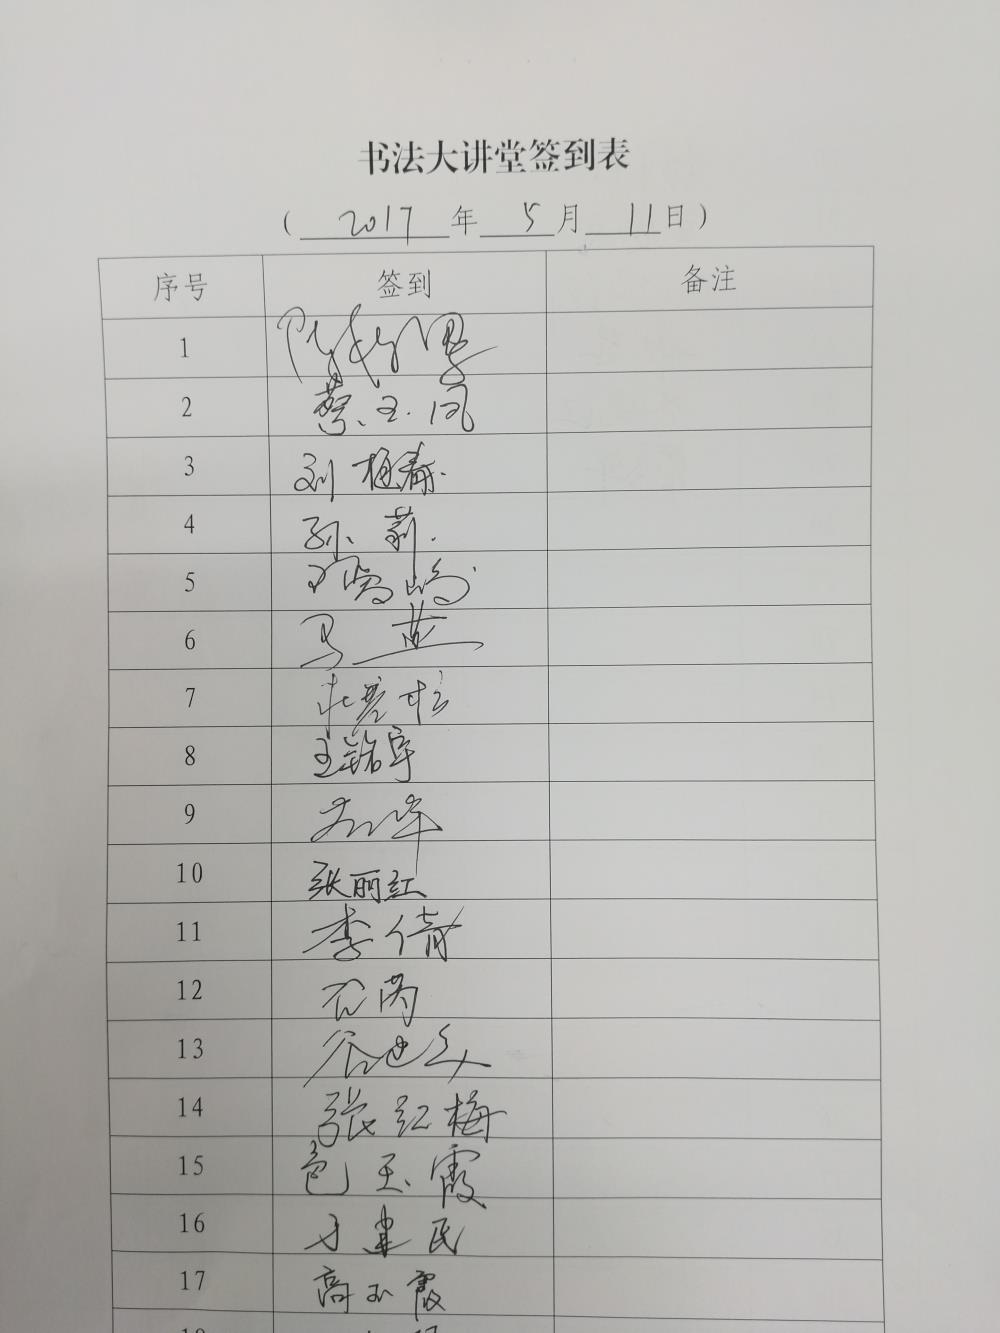 书法大讲堂签到表
( 2017 年 5 月 11 日 )
序号 签到 备注
1
2 蔡玉凤
3 刘植春
4 孙莉
5
6 马燕
7
8 王铭宇
9
10 张丽红
11 李倩
12 石芮
13
14 张红梅
15 包玉霞
16 于建民
17 高玉霞
18